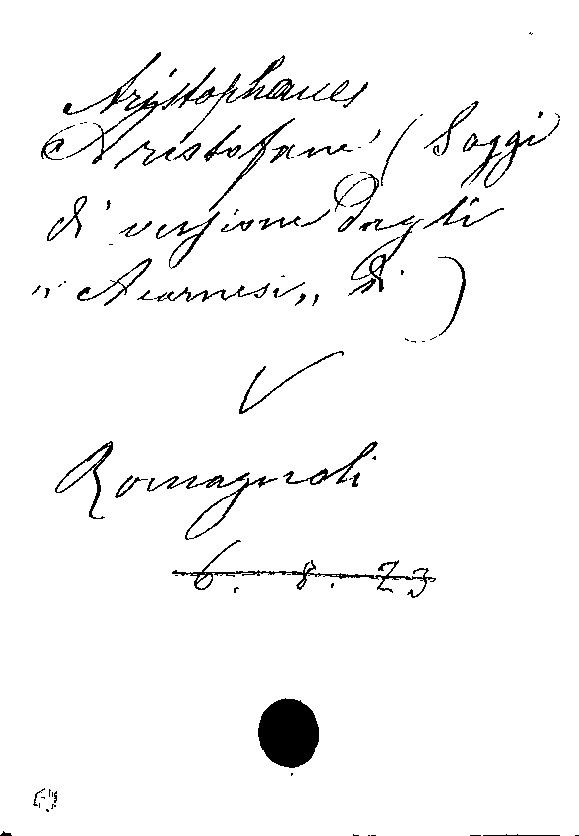 Aristophanes
Aristofane (Saggi
di versione dagli
"Acarnesi" di )
V
Romagnoli
6. 8. 23